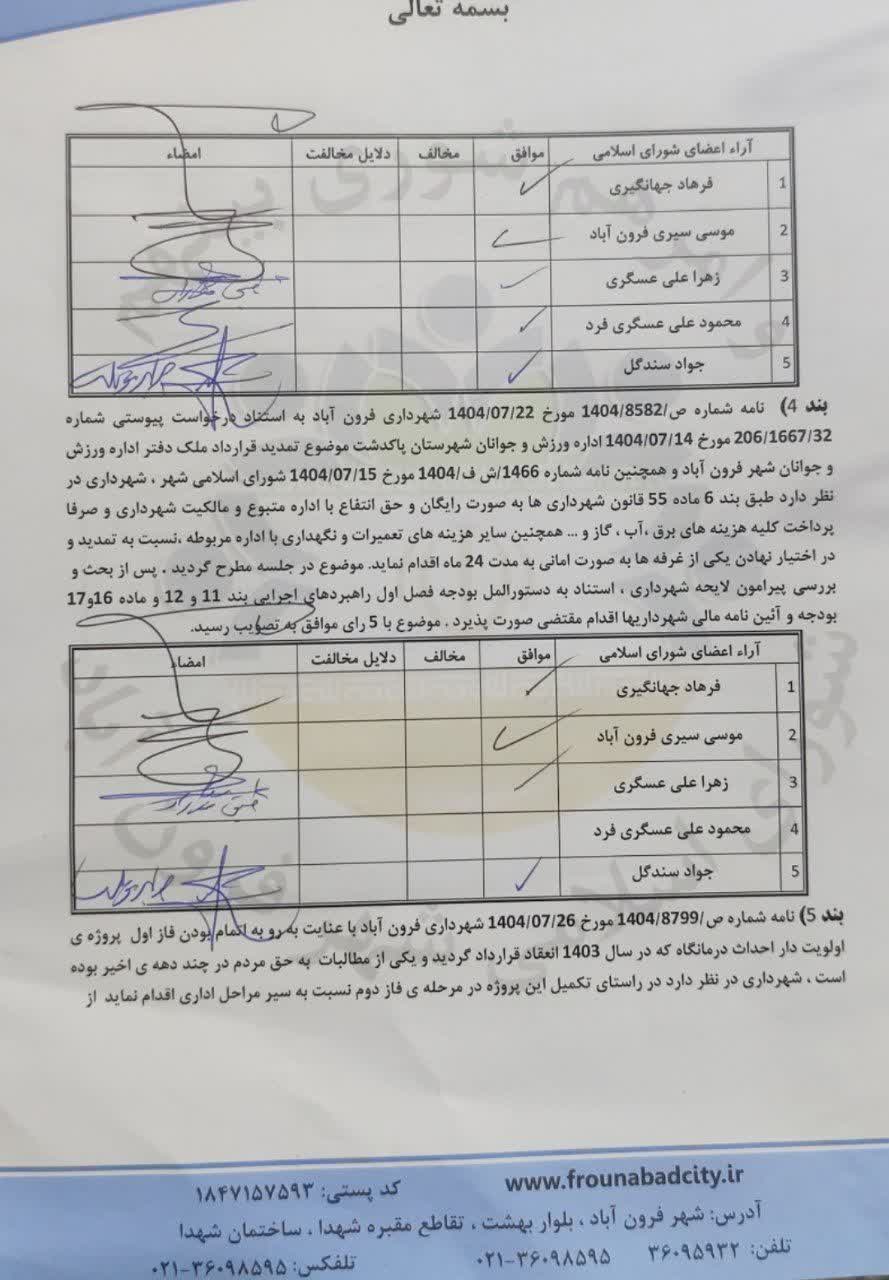 بسمه تعالی
آراء اعضای شورای اسلامی موافق مخالف دلایل مخالفت امضاء
1 فرهاد جهانگیری
2 موسی سیری فرون آباد
3 زهرا علی عسگری
4 محمود علی عسگری فرد
5 جواد سندگل
بند 4) نامه شماره ص/1404/8582 مورخ 1404/07/22 شهرداری فرون آباد به استناد درخواست پیوستی شماره
206/1667/32 مورخ 1404/07/14 اداره ورزش و جوانان شهرستان پاکدشت موضوع تمدید قرارداد ملک دفتر اداره ورزش
و جوانان شهر فرون آباد و همچنین نامه شماره 1466/ش ف/1404 مورخ 1404/07/15 شورای اسلامی شهر ، شهرداری در
نظر دارد طبق بند 6 ماده 55 قانون شهرداری ها به صورت رایگان و حق انتفاع با اداره متبوع و مالکیت شهرداری و صرفا
پرداخت کلیه هزینه های برق ،آب ، گاز و ... همچنین سایر هزینه های تعمیرات و نگهداری با اداره مربوطه ،نسبت به تمدید و
در اختیار نهادن یکی از غرفه ها به صورت امانی به مدت 24 ماه اقدام نماید. موضوع در جلسه مطرح گردید . پس از بحث و
بررسی پیرامون لایحه شهرداری ، استناد به دستورالمل بودجه فصل اول راهبردهای اجرایی بند 11 و 12 و ماده 16و17
بودجه و آئین نامه مالی شهرداریها اقدام مقتضی صورت پذیرد . موضوع با 5 رای موافق به تصویب رسید.
آراء اعضای شورای اسلامی موافق مخالف دلایل مخالفت امضاء
1 فرهاد جهانگیری
2 موسی سیری فرون آباد
3 زهرا علی عسگری
4 محمود علی عسگری فرد
5 جواد سندگل
بند 5) نامه شماره ص/1404/8799 مورخ 1404/07/26 شهرداری فرون آباد با عنایت به رو به اتمام بودن فاز اول پروژه ی
اولویت دار احداث درمانگاه که در سال 1403 انعقاد قرارداد گردید و یکی از مطالبات به حق مردم در چند دهه ی اخیر بوده
است ، شهرداری در نظر دارد در راستای تکمیل این پروژه در مرحله ی فاز دوم نسبت به سیر مراحل اداری اقدام نماید از
www.frounabadcity.ir کد پستی: ۱۸۴۷۱۵۷۵۹۳
آدرس: شهر فرون آباد ، بلوار بهشت ، تقاطع مقبره شهدا ، ساختمان شهدا
تلفن: ۳۶۰۹۵۹۳۲ ۰۲۱-۳۶۰۹۸۵۹۵ تلفکس: ۰۲۱-۳۶۰۹۸۵۹۵